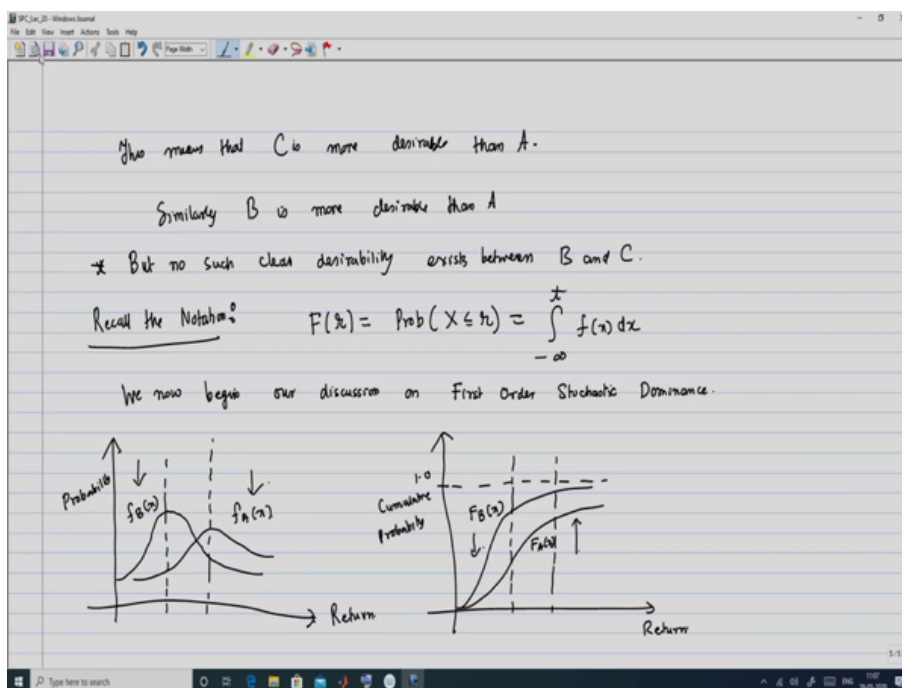 SPC_Lec_20 - Windows Journal
File Edit View Insert Actions Tools Help
Page Width
This means that C is more desirable than A.
Similarly B is more desirable than A
* But no such clear desirability exists between B and C.
Recall the Notation: F(r) = Prob(X ≤ r) = ∫_{-∞}^{t} f(x) dx
We now begin our discussion on First Order Stochastic Dominance.
Probability
f_B(x)
f_A(x)
Return
1.0
Cumulative
Probability
F_B(x)
F_A(x)
Return
1/1
Type here to search
ENG
11:07